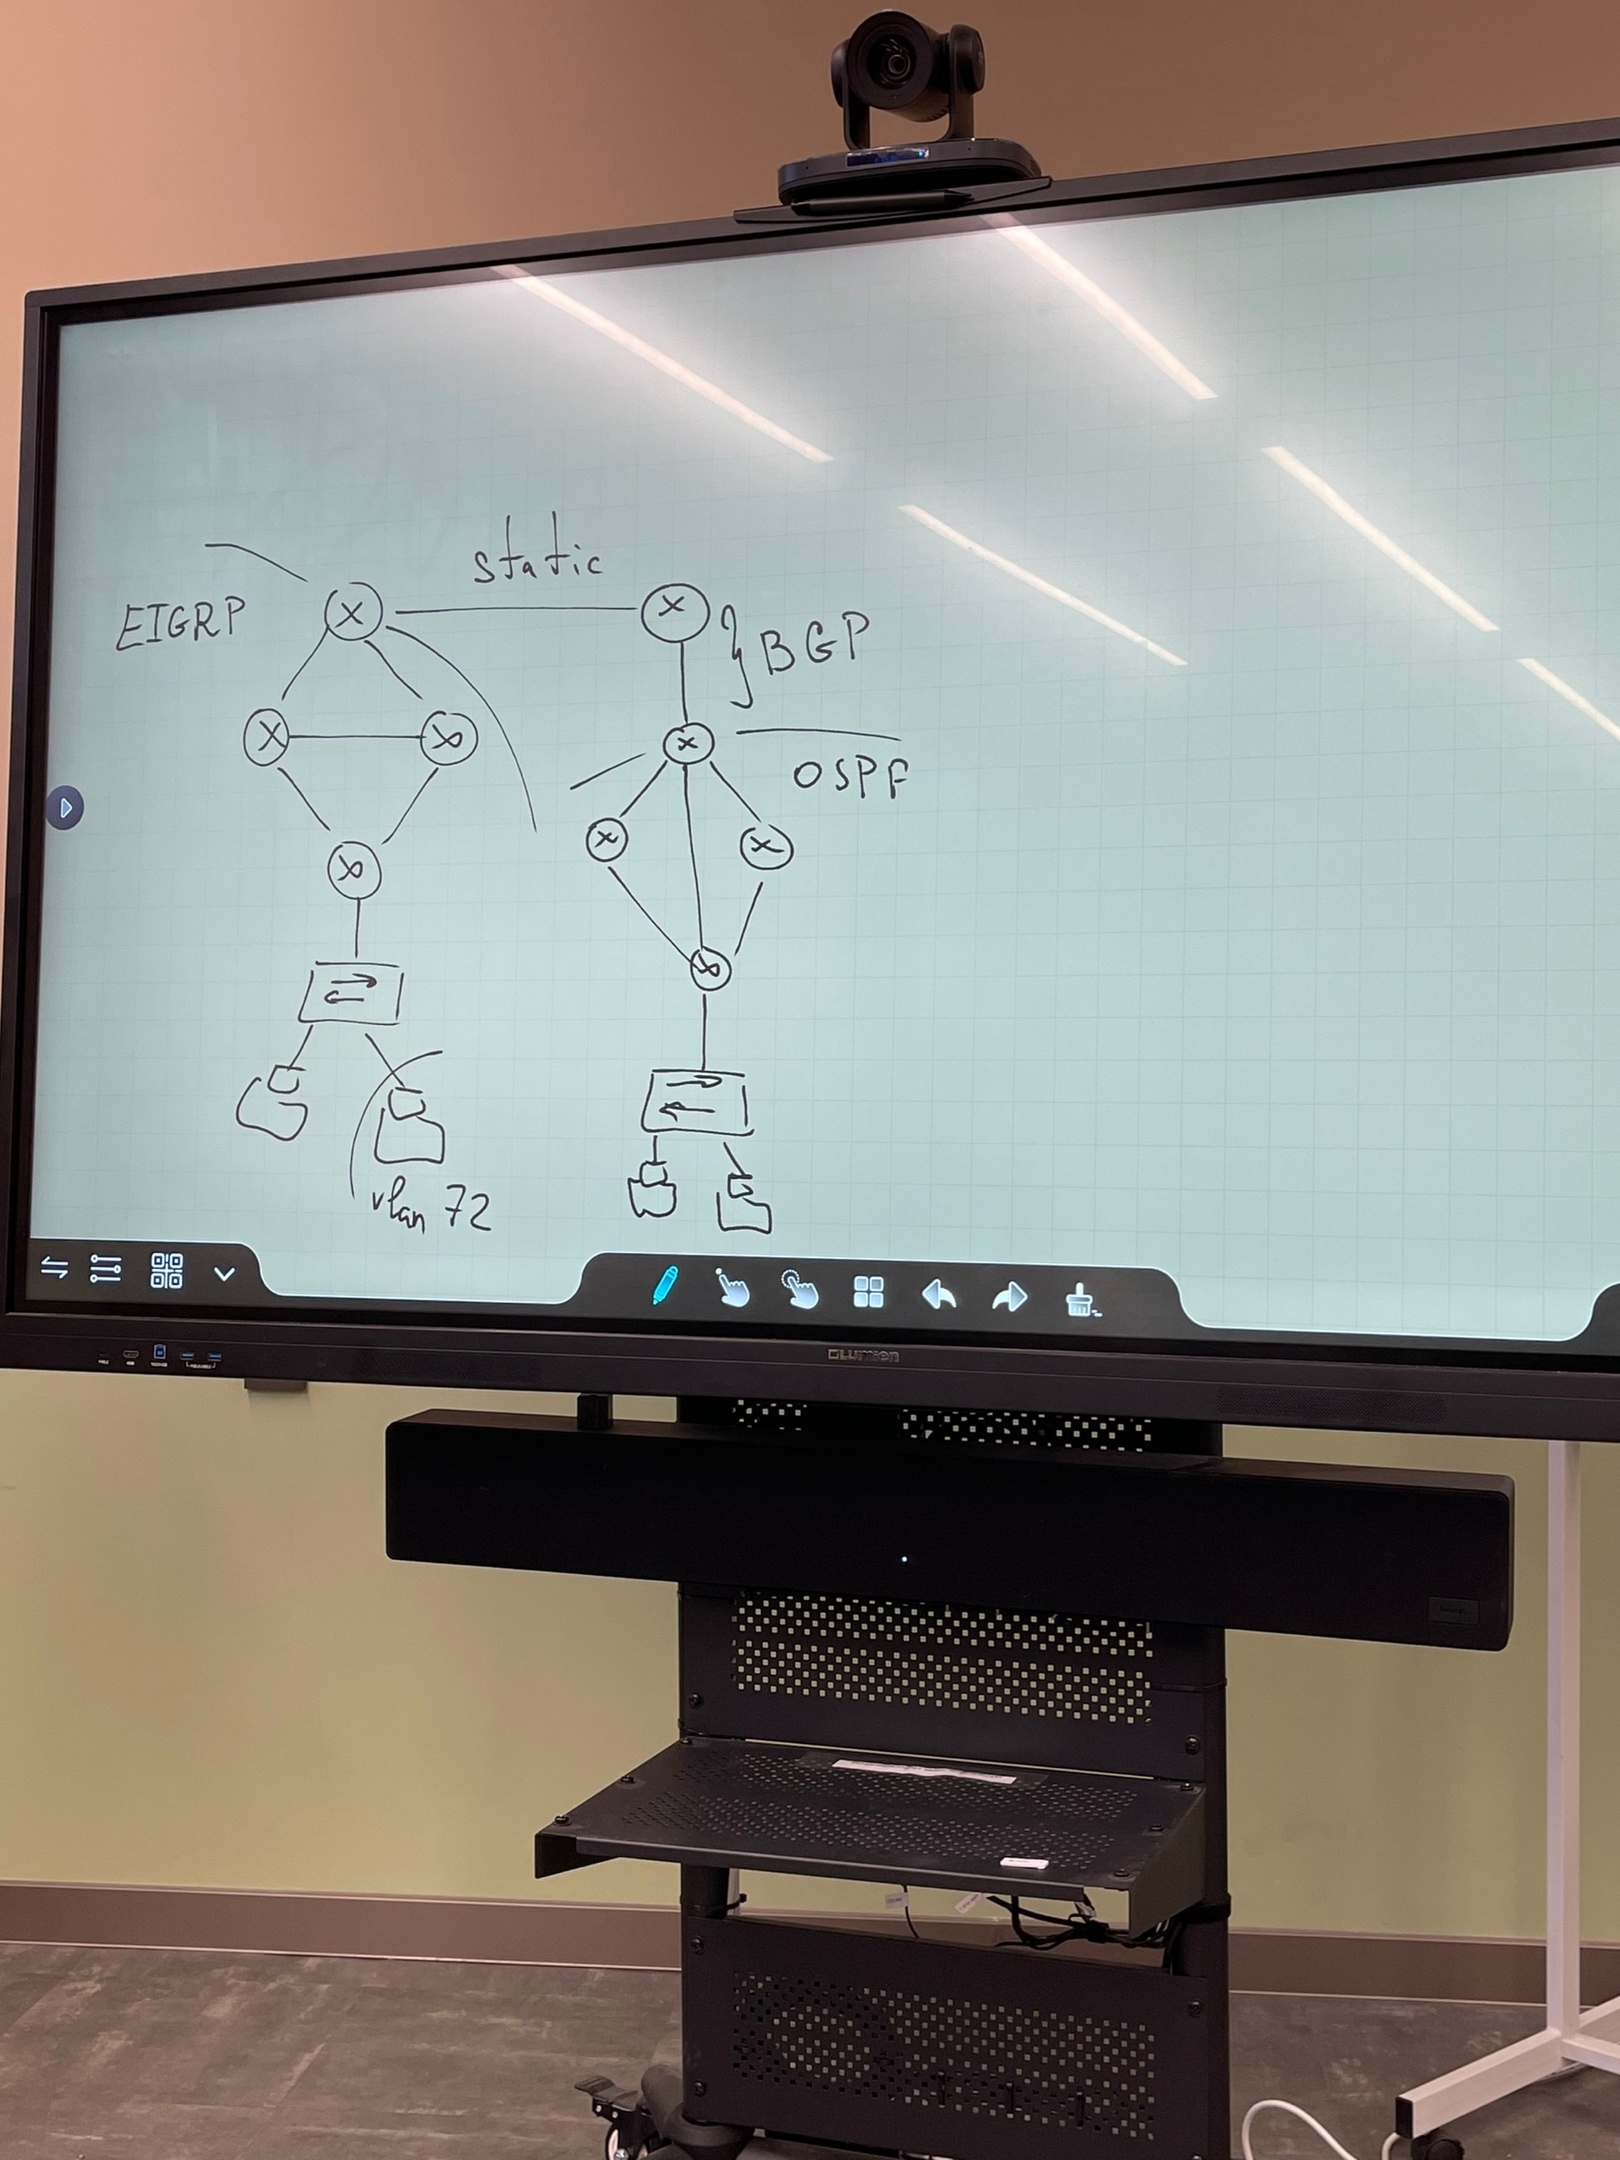 static
EIGRP
BGP
OSPF
vlan 72